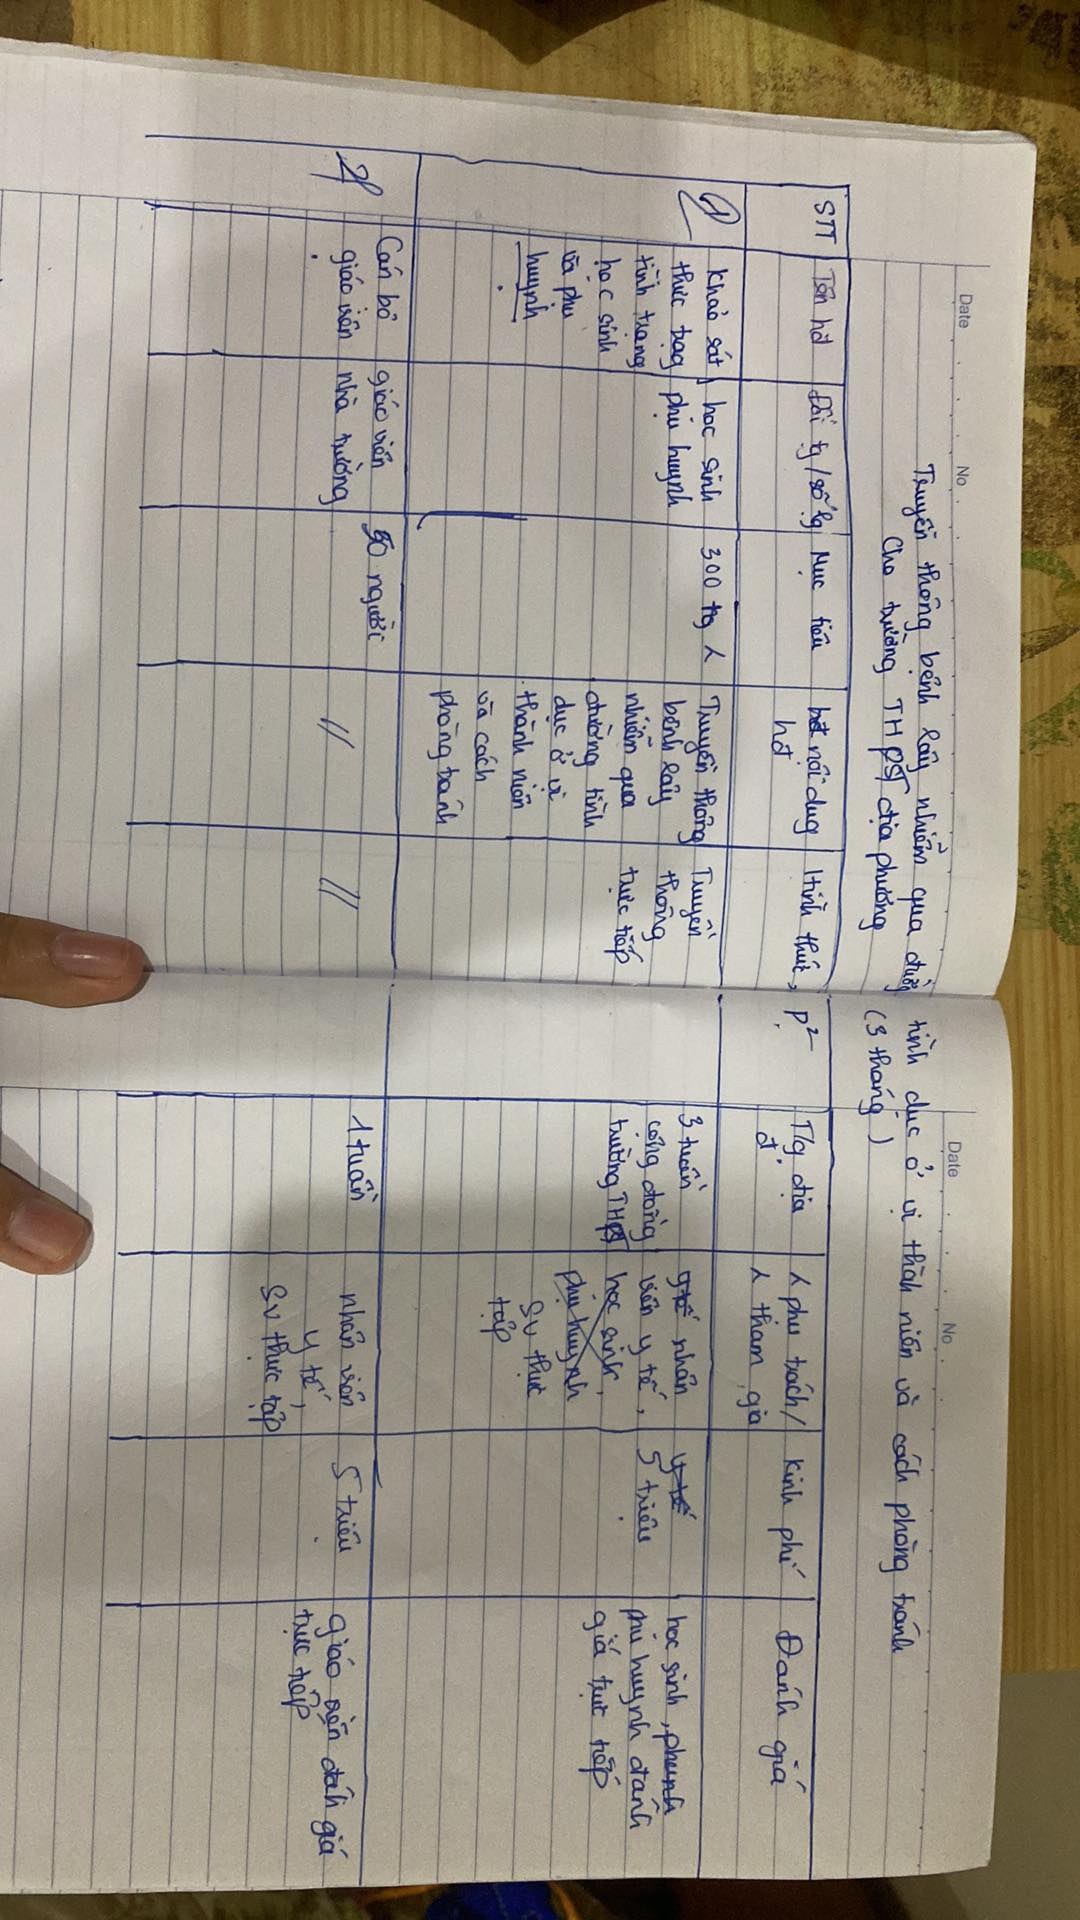 Date No
Date No
Truyền thông bệnh lây nhiễm qua đường tình dục ở vị thành niên và cách phòng tránh
Cho trường THPT địa phương (3 tháng)
STT
Tên hđ
Đối tg/số lg
Mục tiêu
nội dug
hđ
Hình thức,
P²
T/g địa
đ'
phụ trách/
tham gia
Kinh phí
Đánh giá
1
Khảo sát
thực trạg
tình trạng
học sinh
và phụ
huynh
học sinh
phụ huynh
300
Truyền thông
bệnh lây
nhiễm qua
đường tình
dục ở vị
thành niên
và cách
phòng tránh
Truyền
thông
trực tiếp
3 tuần
cổng đồng
trường THPT
y tế nhân
viên y tế,
học sinh,
phụ huynh
SV thực
tập
y tế
5 triệu
học sinh,
phụ huynh đánh
giá trực tiếp
2
Cán bộ
giáo viên
giáo viên
nhà trường
50 người
//
//
1 tuần
nhân viên
y tế,
SV thực tập
5 triệu
giáo viên đánh giá
trực tiếp